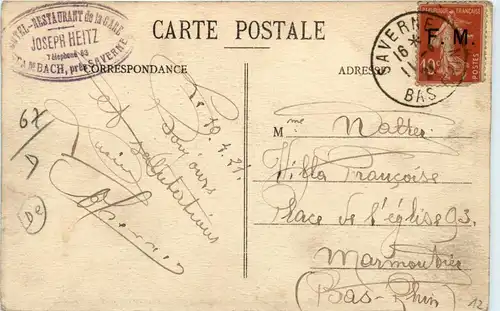 HOTEL-RESTAURANT de la GARE
JOSEPH HEITZ
Téléphone 53
AMBACH, près SAVERNE
CARTE POSTALE
CORRESPONDANCE
ADRESSE
SAVERNE
16 *
BAS
F. M.
10c
67
D
De
Le 10.7.21.
Bonjours
et salutations
Mme Natter
Villa Françoise
Place de l'église 93.
Marmoutier
(Bas-Rhin)
12